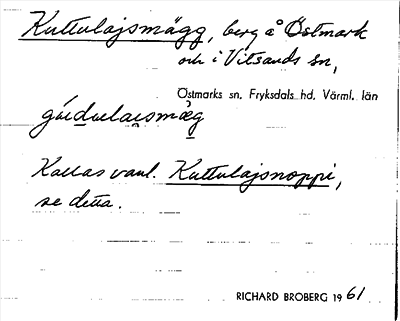 Kuttulajsmägg, berg å Östmark
och i Vitsands sn,
Östmarks sn. Fryksdals hd. Värml. län
gúdulaismäg
Kallas vanl. Kuttulajsnoppi,
se detta.
RICHARD BROBERG 1961.